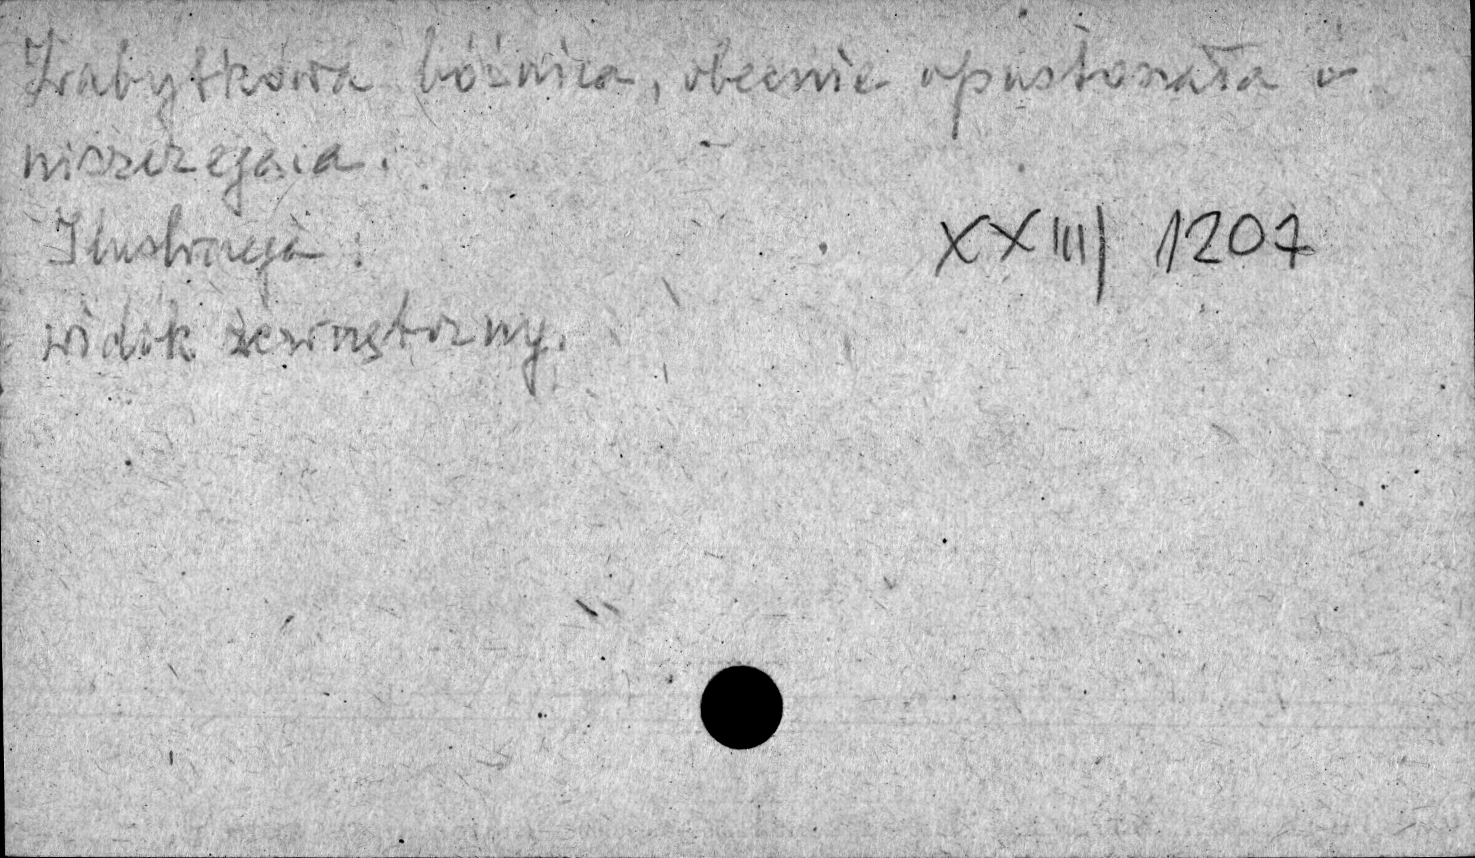 Zabytkowa bóżnica, obecnie opustoszała i
niszczejąca.
Ilustracja:
XXIII/1207
widok zewnętrzny.